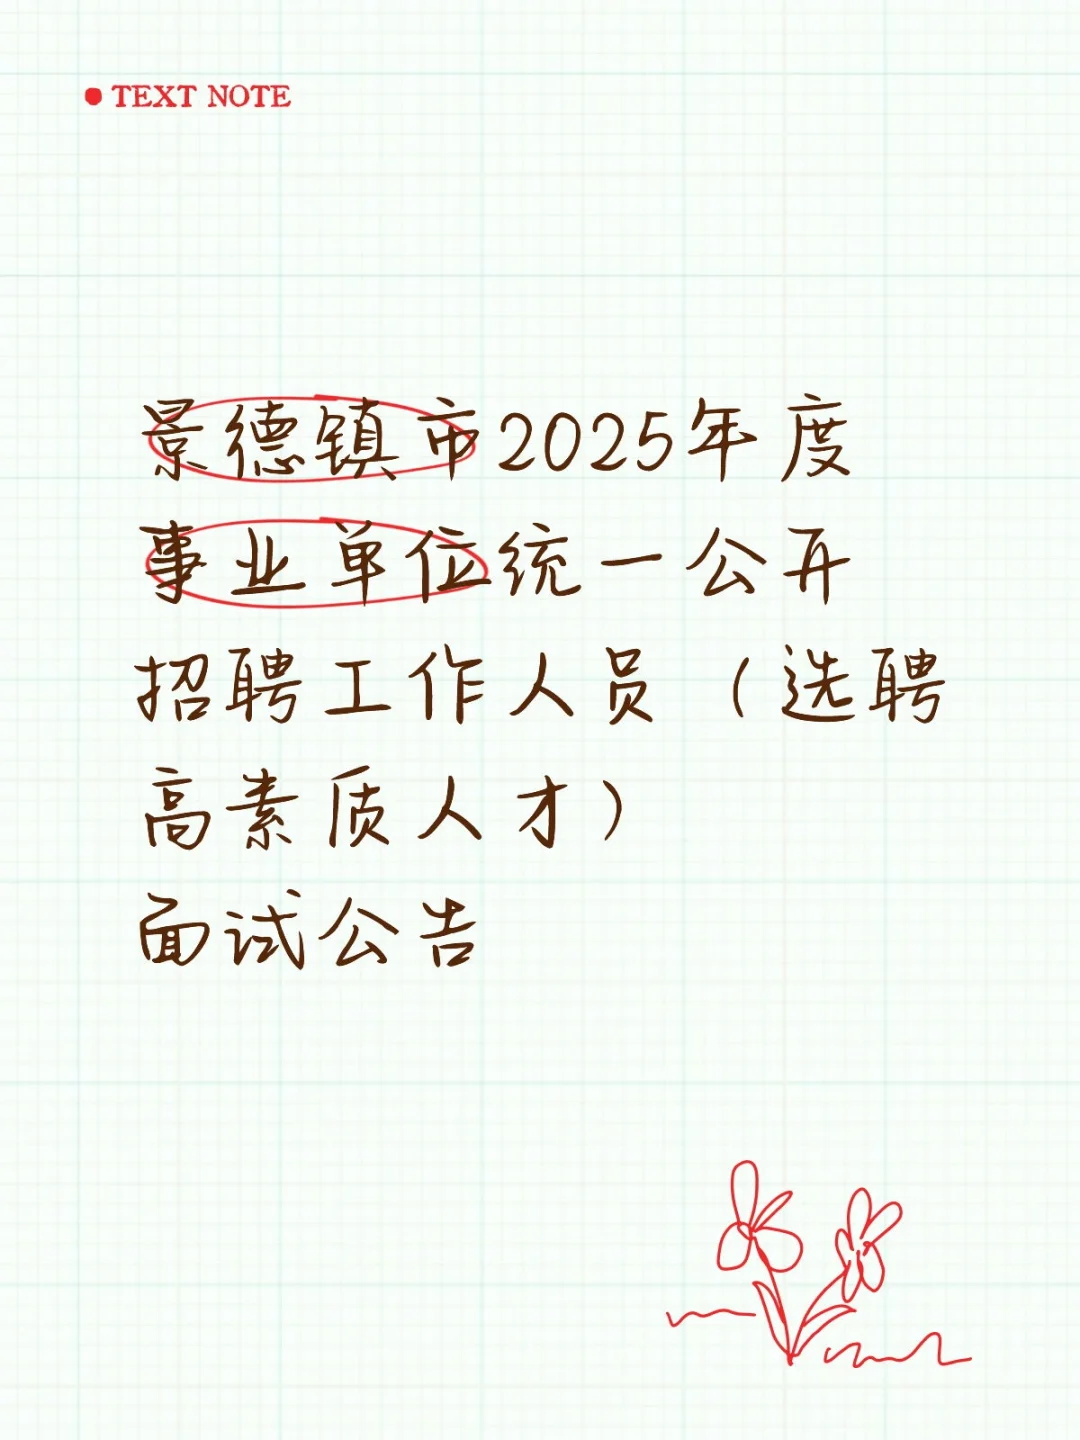 TEXT NOTE
景德镇市2025年度
事业单位统一公开
招聘工作人员（选聘
高素质人才）
面试公告